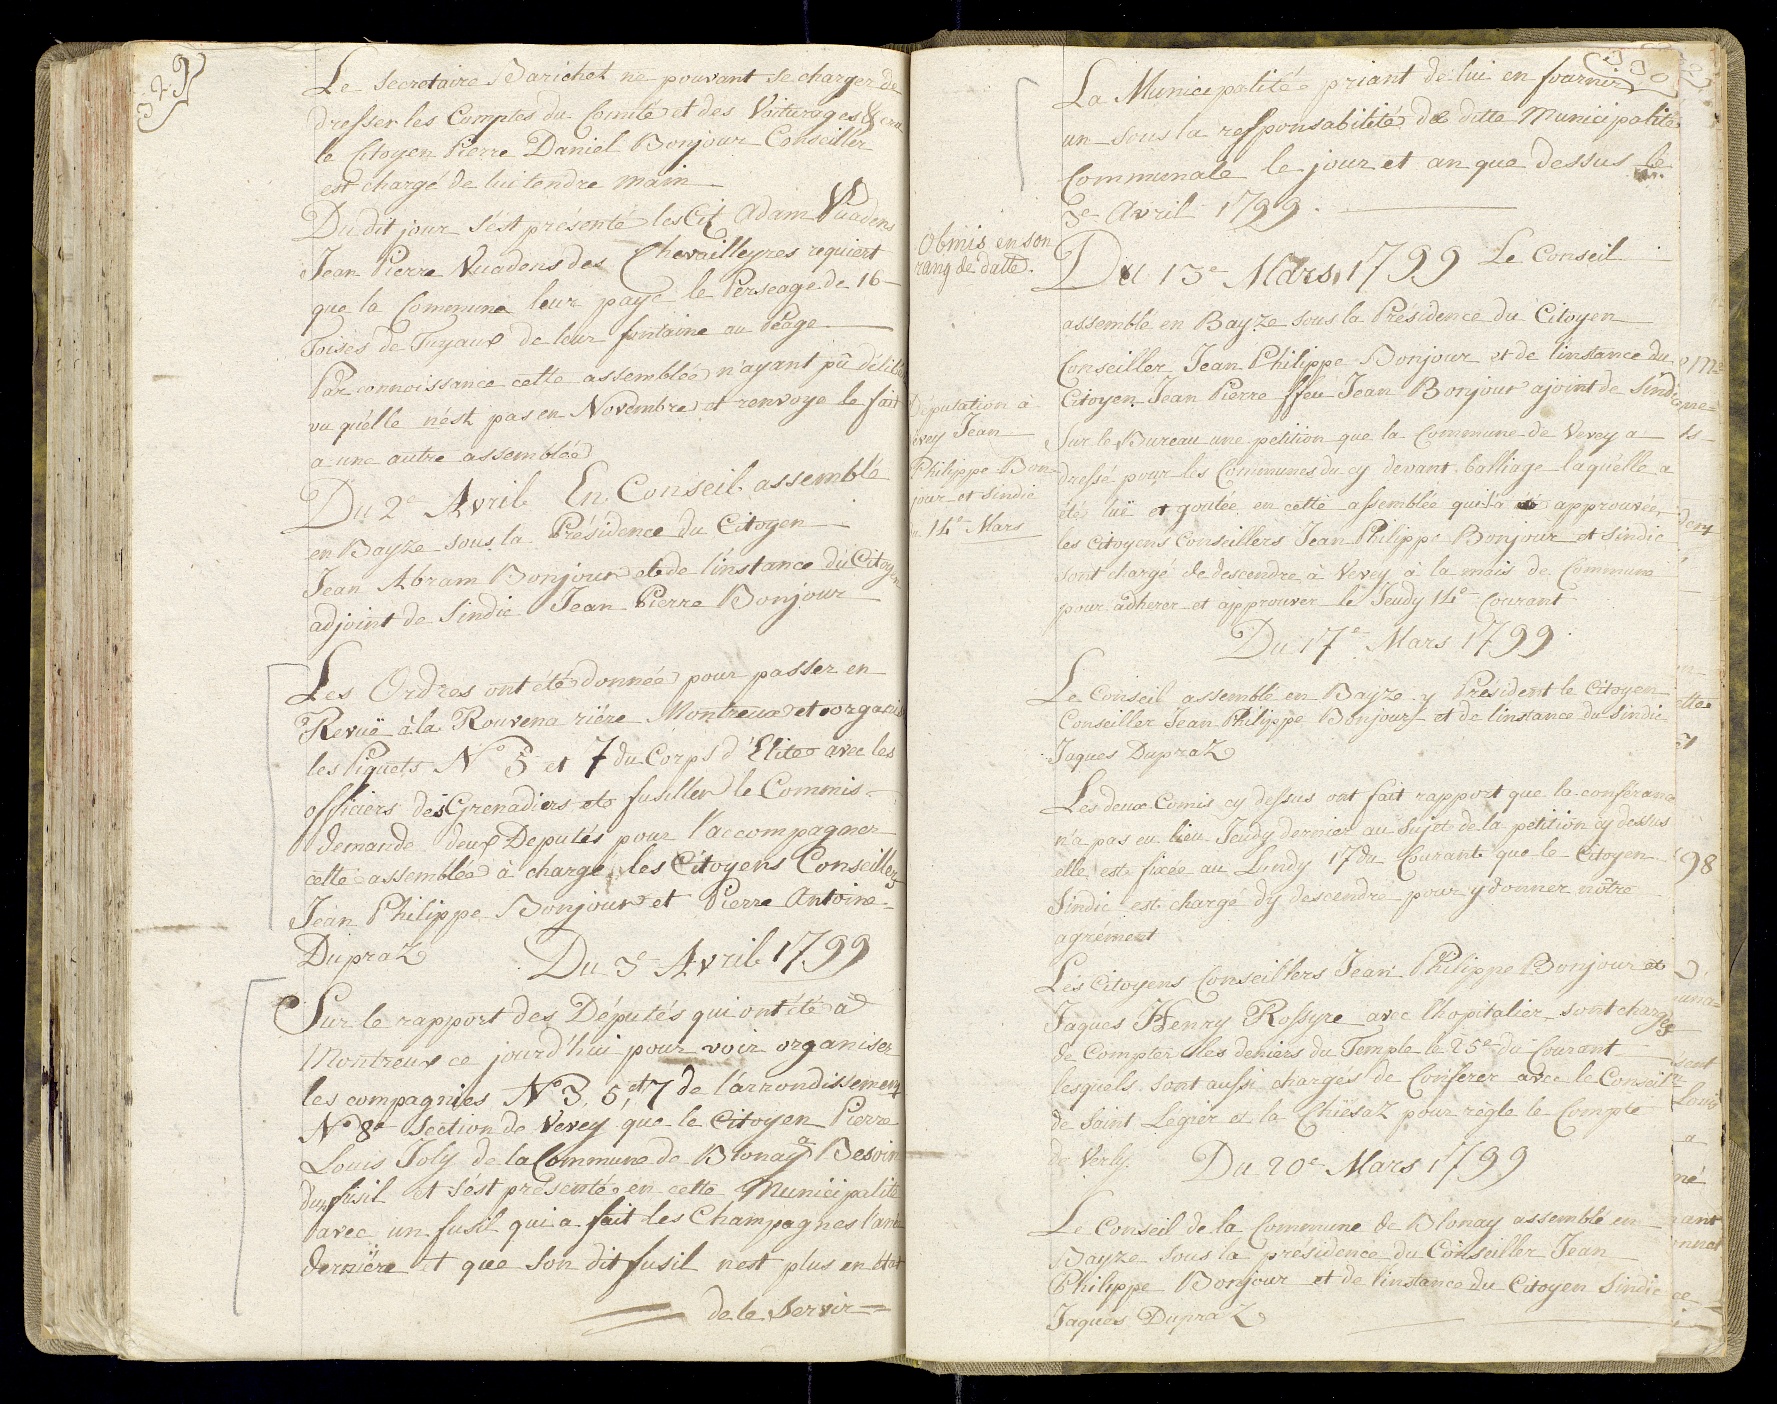 329
Le Secretaire Barichet ne pouvant se charger de
dresser les Comptes du Comite et des Voiturages &
le Citoyen Pierre Daniel Bonjour Conseiller
est chargé de lui tendre main
Du dit jour s'est présenté les Cit Adam Vuadens
Jean Pierre Vuadens des Chevailleyres requiert
que la Commune leur paye le Perseage de 16
Toises de Tuyaux de leur fontaine au Péage
Par connoissance cette assemblée n'ayant pû
vu qu'elle n'est pas en Novembre et renvoye le fait
a une autre assemblée
Du 2e Avril En Conseil assemblé
en Bayze sous la Présidence du Citoyen
Jean Abram Bonjour et de l'instance du Citoyen
adjoint de Sindic Jean Pierre Bonjour
Les Ordres ont été donnée pour passer en
Revuë à la Rouvena riére Montreux et organiser
les Piquets N° 5 et 7 du Corps d'Elite avec les
officiers des Grenadiers et fusillier le Commis-
demande deux Deputés pour l'accompagner
cette assemblée à charge les Citoyens Conseillers
Jean Philippe Bonjour et Pierre Antoine
Dupraz Du 3e Avril 1799
Sur le rapport des Députés qui ont été à
Montreux ce jourd'hui pour voir organiser
les compagnies N° 3, 5, et 7 de l'arrondissement
N° 8e Section de Vevey, que le Citoyen Pierre
Louis Joly de la Commune de Blonay a Besoin
d'un fusil et s'est présenté en cette Municipalité
avec un fusil qui a fait les Champagnes l'année
derniére et que son dit fusil n'est plus en état
de le servir
330
La Municipalité priant de lui en fournir
un sous la responsabilité de ditte Municipalité
Communale le jour et an que dessus le
3e Avril 1799.
Obmis en son
rang de datte.
Du 13e Mars 1799 Le Conseil
assemblé en Bayze sous la Présidence du Citoyen
Conseiller Jean Philippe Bonjour et de l'instance du
Citoyen Jean Pierre ffeu Jean Bonjour ajoint de Sindic
Députation à
Vevey Jean
Philippe Bon-
jour et Sindic
14e Mars
Sur le Bureau une petition que la Commune de Vevey a
dressé pour les Communes du cy devant balliage laquelle a
etée luë et goutée en cette assemblée qui l'a approuvée,
les Citoyens Conseillers Jean Philippe Bonjour et Sindic
sont chargé de descendre à Vevey à la mais de Commune
pour adherer et approuver le Jeudy 14e Courant
Du 17e Mars 1799.
Le Conseil assemble en Bayze y President le Citoyen
Conseiller Jean Philippe Bonjour et de l'instance du Sindic
Jaques Dupraz
Les deux Comis cy dessus ont fait rapport que la conférance
n'a pas eu lieu Jeudy dernier au sujet de la petition cy dessus
elle est fixée au Lundy 17 du Courant que le Citoyen
Sindic est chargé d'y descendre pour y donner nôtre
agrement
Les Citoyens Conseillers Jean Philippe Bonjour et
Jaques Henry Rossyre avec l'hopitalier sont chargés
de Compter les deniers du Temple le 25e du Courant
lesquels sont aussi chargés de Conferer avec le Conseil
de Saint Legier et la Chiésaz pour règle le Compte
de Verly. Du 20e Mars 1799
Le Conseil de la Commune de Blonay assemblé en
Bayze sous la présidence du Conseiller Jean
Philippe Bonjour et de l'instance du Citoyen Sindic
Jaques Dupraz